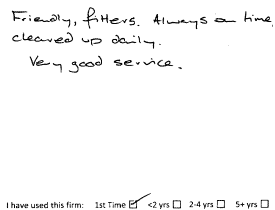 Friendly, fitters. Always on time,
cleared up daily.
Very good service.
I have used this firm: 1st Time ☑ <2 yrs ☐ 2-4 yrs ☐ 5+ yrs ☐